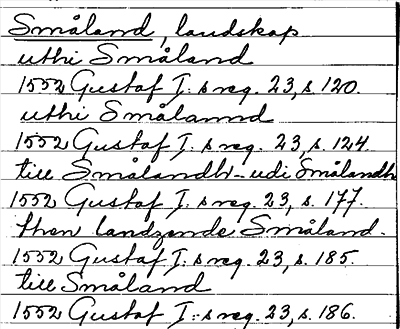 Småland, landskap
uthi Småland
1552 Gustaf I:s reg. 23, s. 120.
uthi Smålannd
1552 Gustaf I:s reg. 23, s. 124.
till Smålandh - udi Smålandh
1552 Gustaf I:s reg. 23, s. 177.
then landzende Småland.
1552 Gustaf I:s reg. 23, s. 185.
till Småland
1552 Gustaf I:s reg. 23, s. 186.